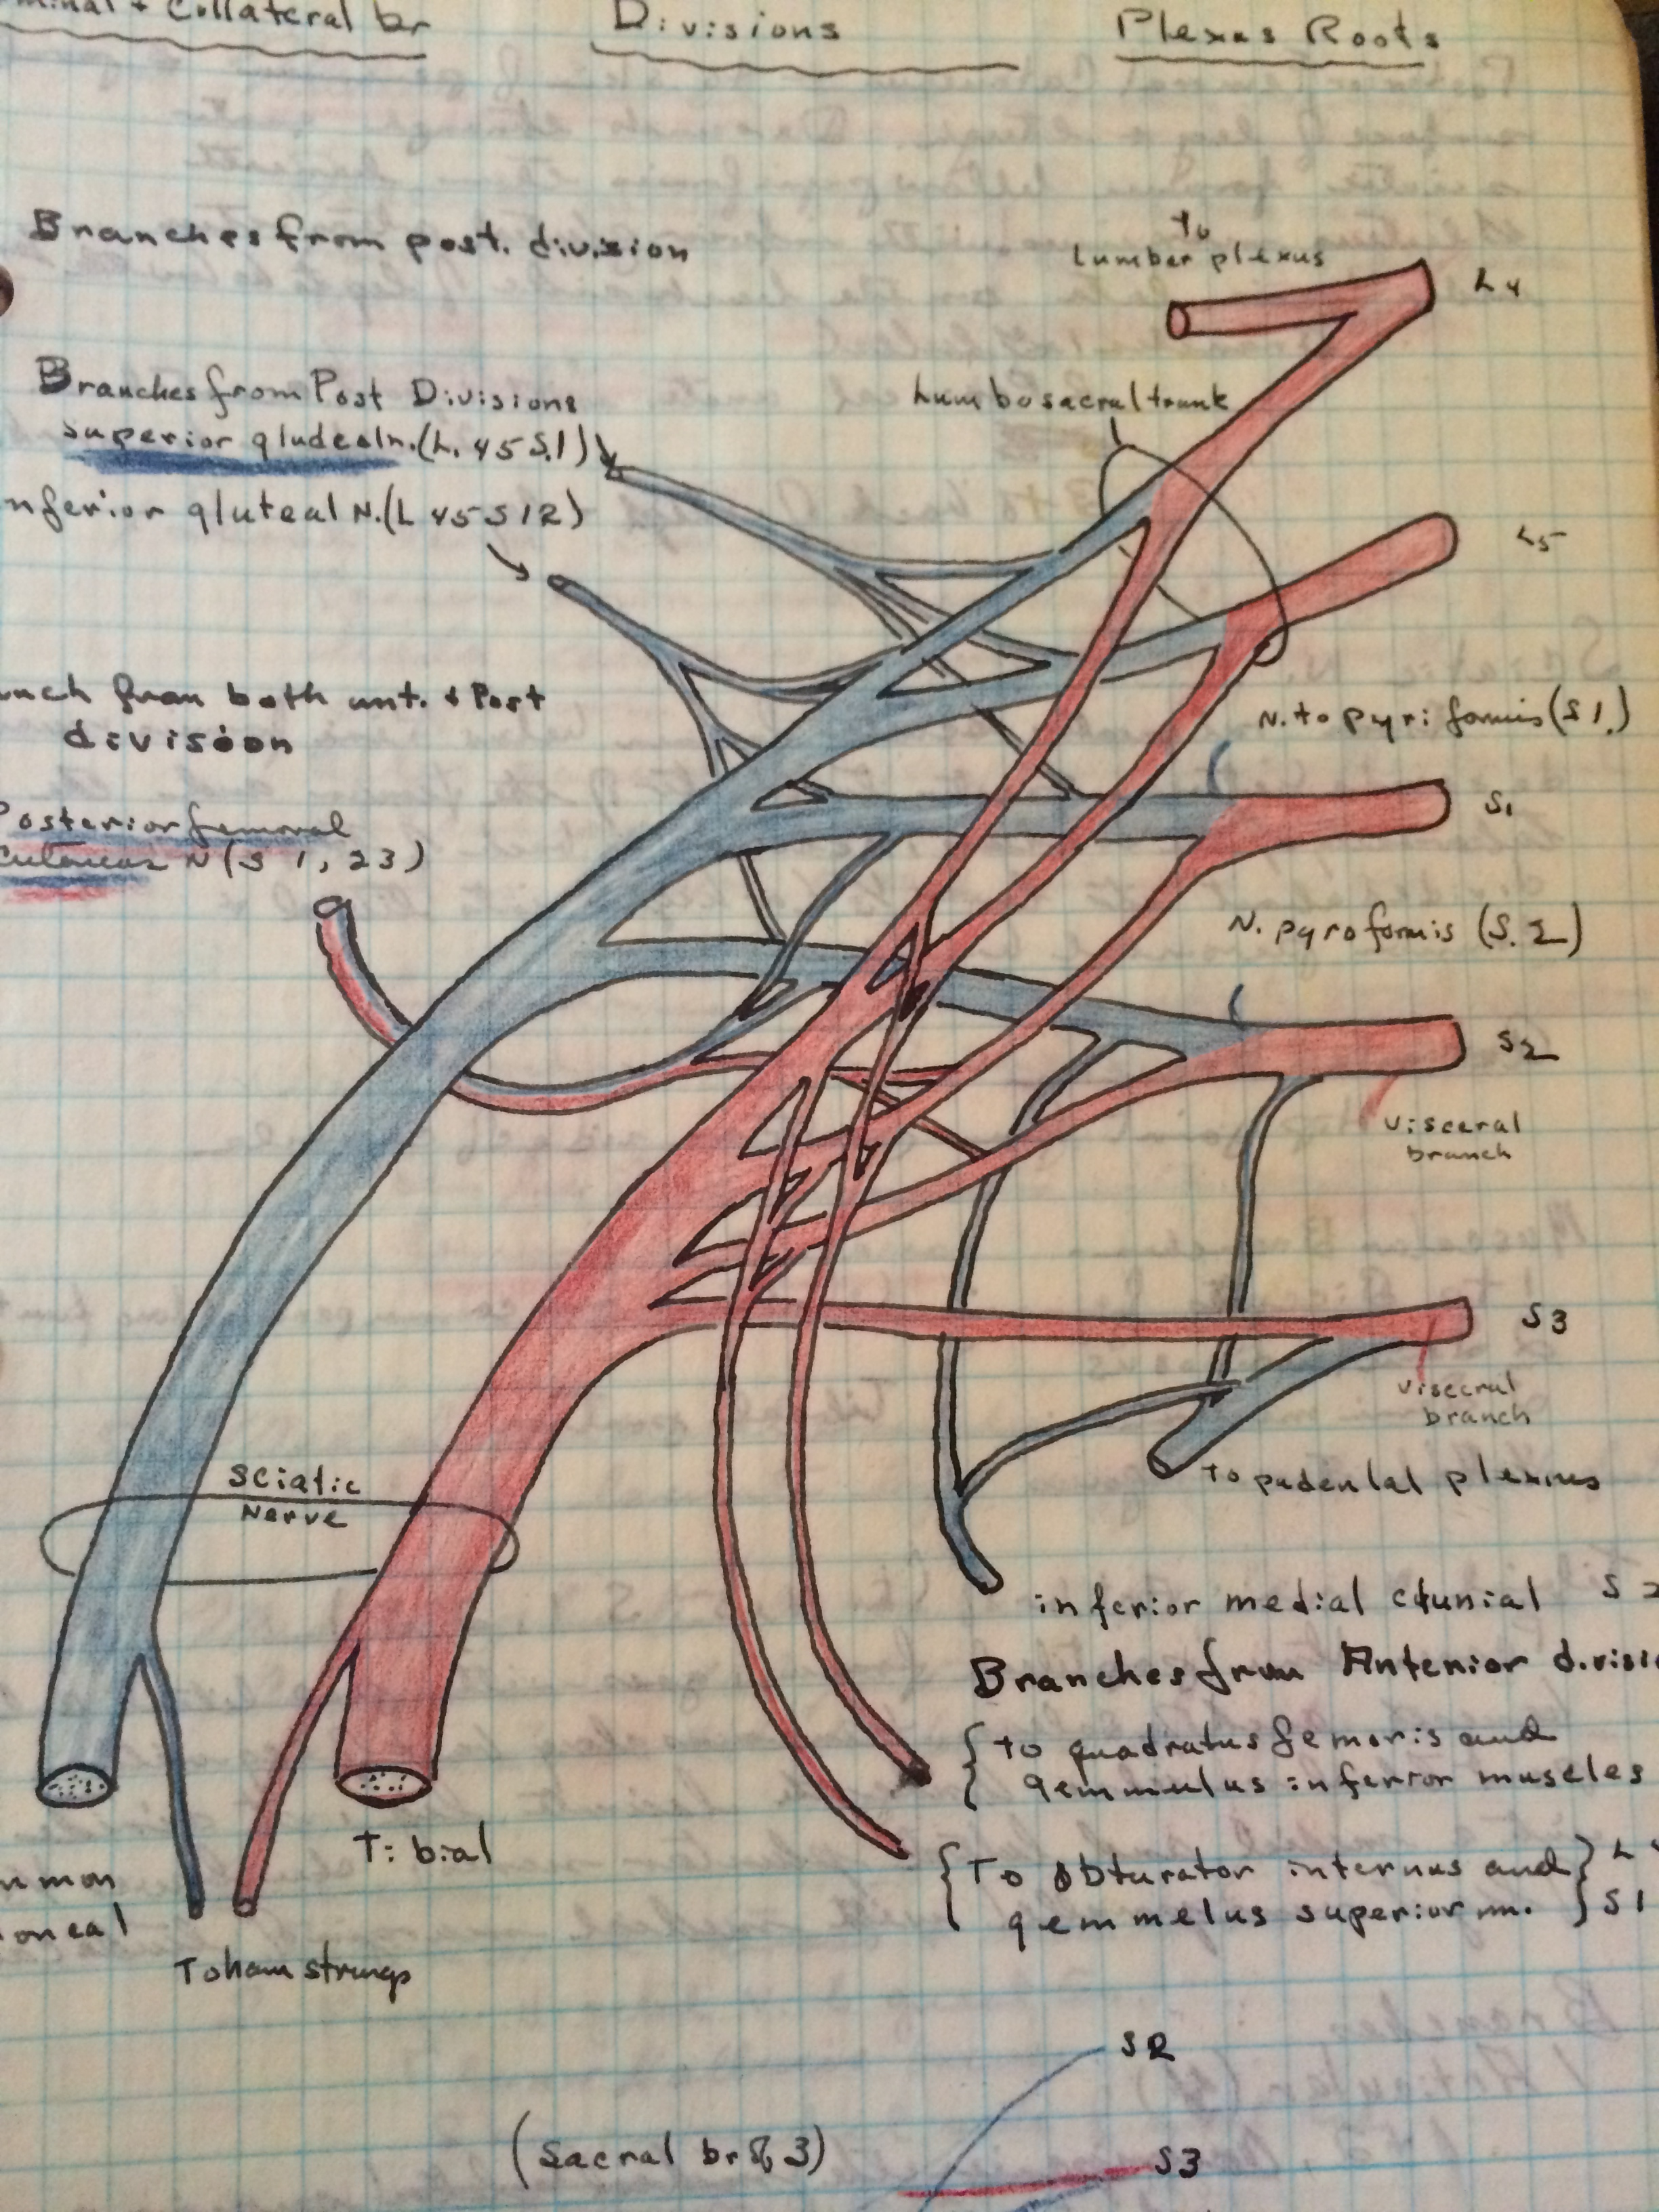 Collateral br
Divisions
Plexus Roots
Branches from post. division
to
Lumber plexus
L4
Branches from Post Divisions
superior gludealn. (L. 45 S.1)
Lumbosacral trunk
nferior gluteal N. (L 45 S 12)
L5
from both ant. + Post
division
N. to pyriformis (S1.)
S1
Posterior femoral
cutaneus N (S 1, 23)
N. pyroformis (S. 2)
S2
visceral
branch
S3
visceral
branch
sciatic
Nerve
to pudental plexus
inferior medial clunial S 2
Branches from Anterior divisi
{ to quadratus femoris and
gemmulus inferror muscles
Tibial
mmon
oneal
{ To obturator internus and } L 4
gemmelus superior m. } S 1
To hamstrungs
S2
(sacral br & 3)
S3